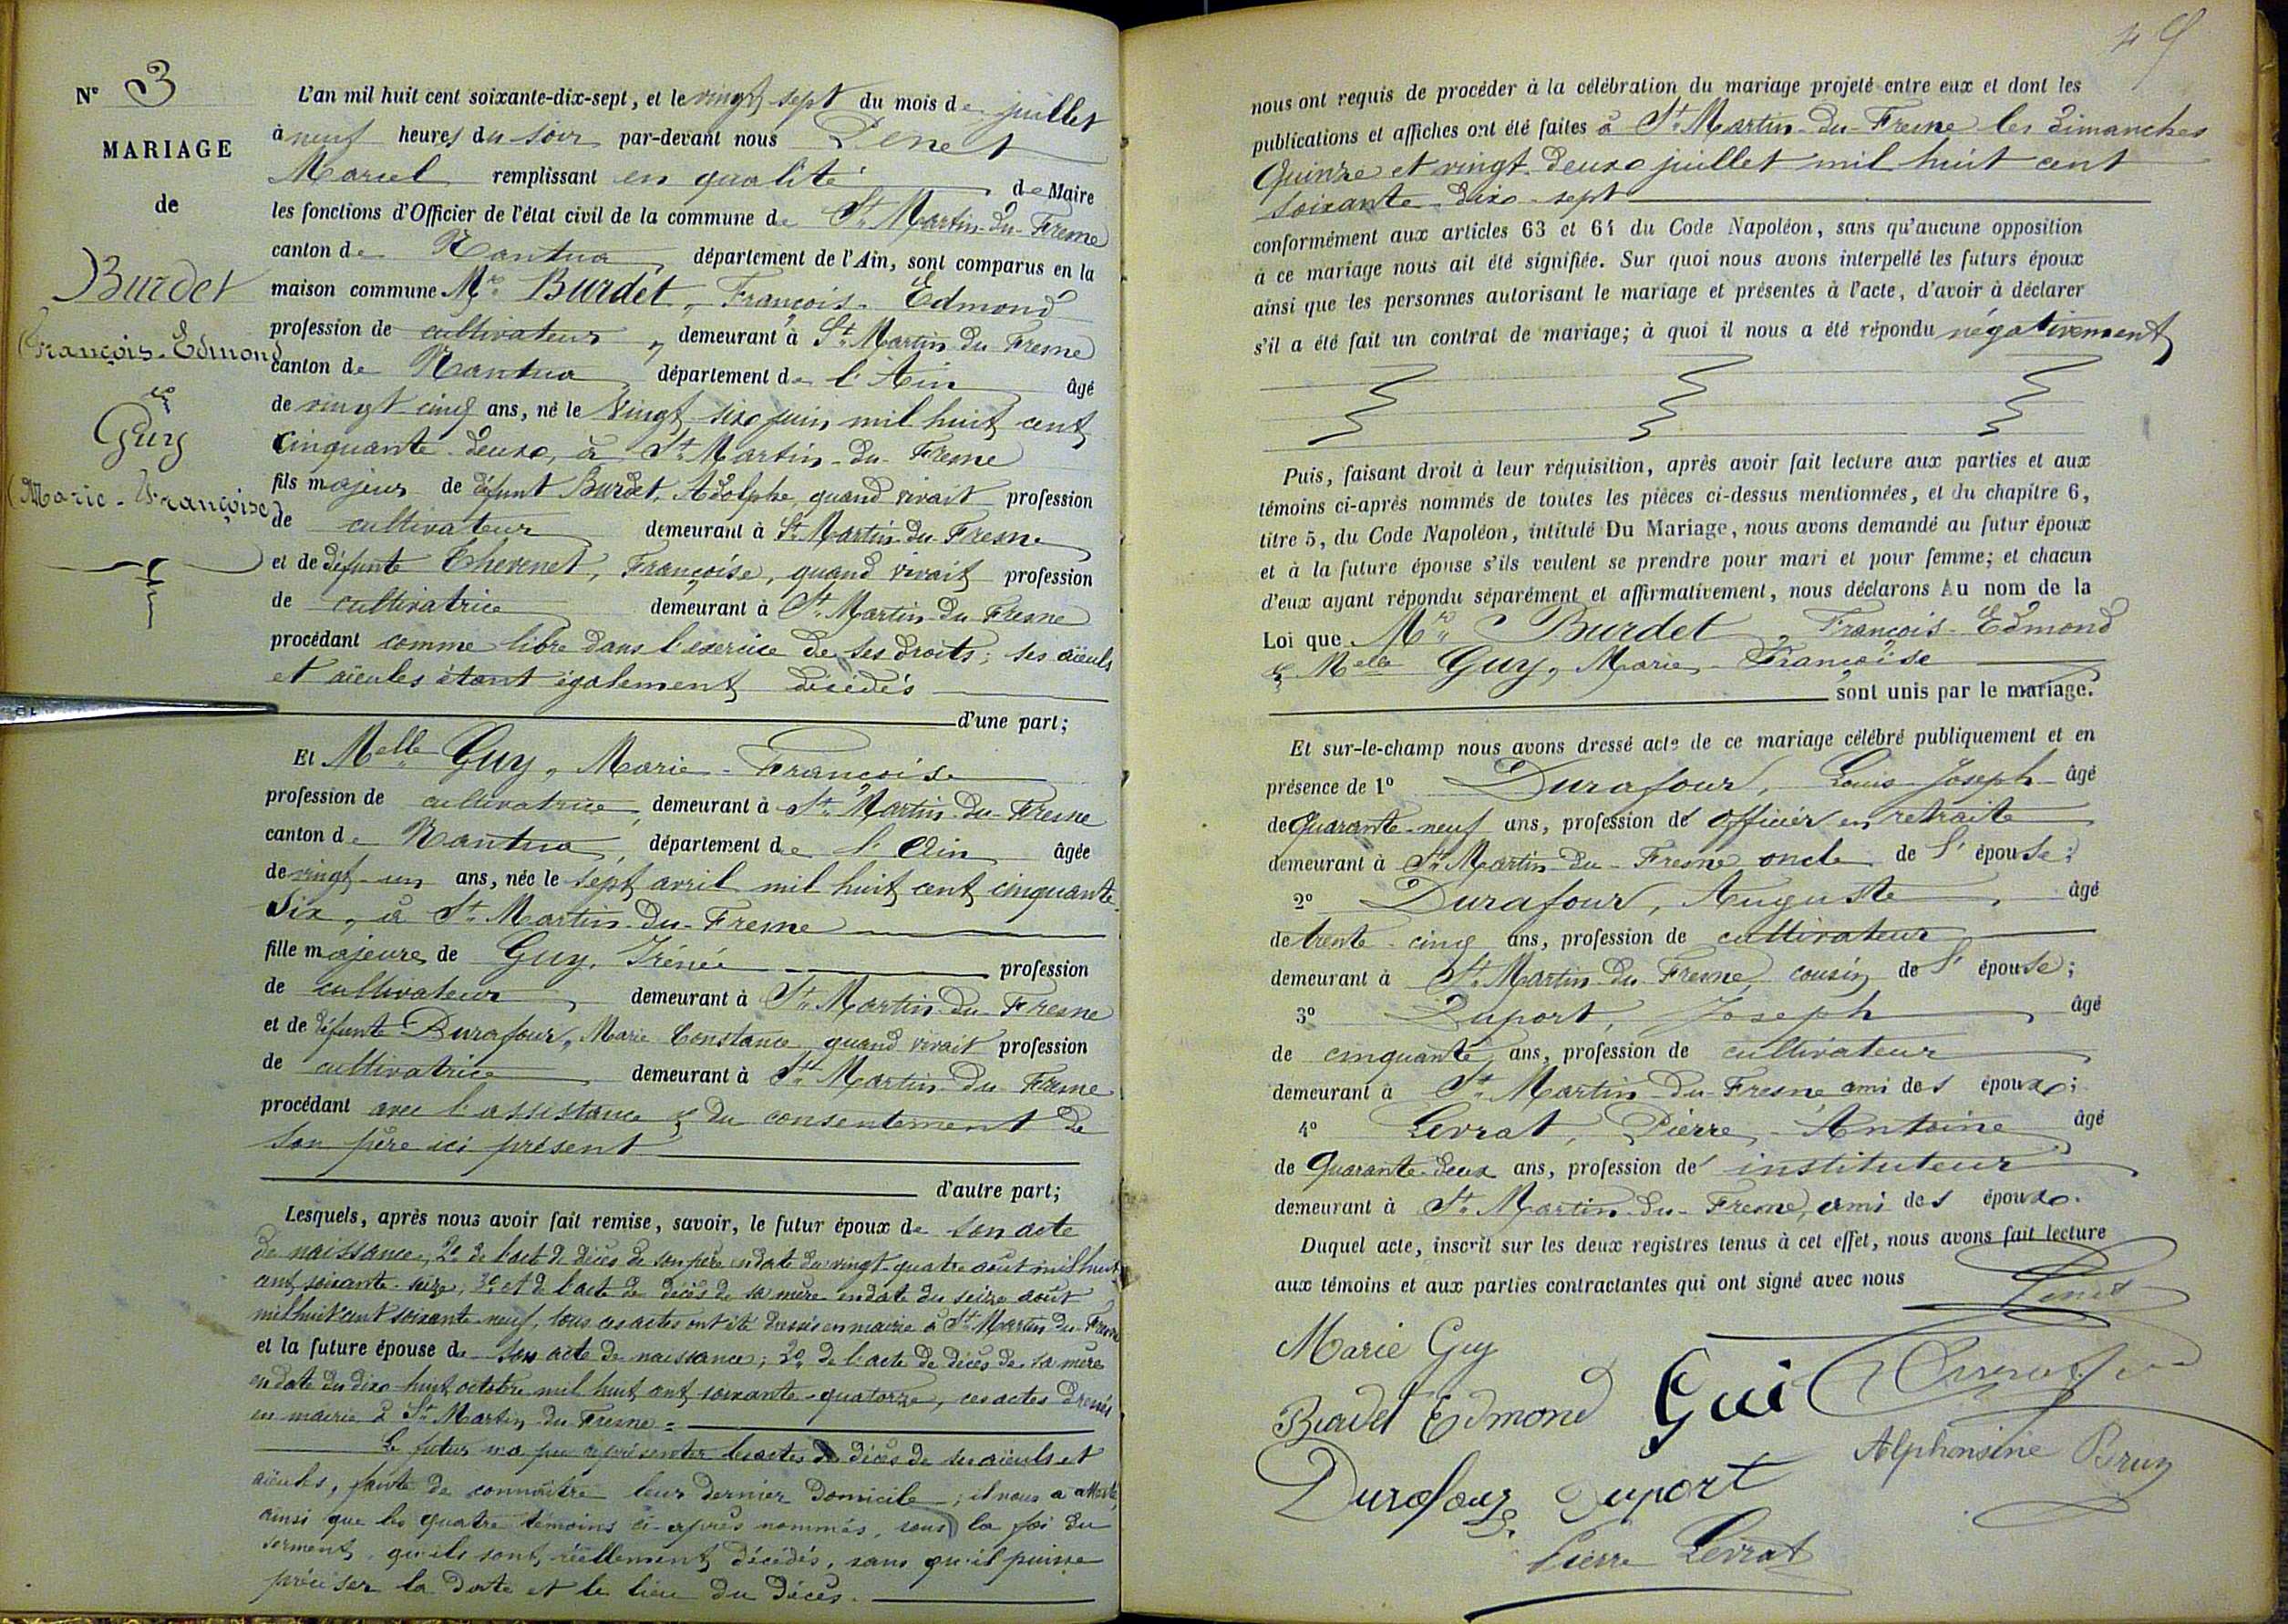 N° 3
MARIAGE
de
Burdet
François-Edmond
et
Guy
(Marie-Françoise)
L'an mil huit cent soixante-dix-sept, et le vingt sept du mois de juillet
à neuf heures du soir par-devant nous Penet
Marcel remplissant en qualité de Maire
les fonctions d'Officier de l'état civil de la commune de St Martin-du-Fresne
canton de Nantua, département de l'Ain, sont comparus en la
maison commune Mr Burdet, François-Edmond
profession de cultivateur, demeurant à St Martin du Fresne
canton de Nantua département de l'Ain âgé
de vingt cinq ans, né le vingt six juin mil huit cent
cinquante deux, à St Martin-du-Fresne
fils majeur de défunt Burdet, Adolphe, quand vivait profession
de cultivateur demeurant à St Martin du Fresne
et de défunte Chevenet, Françoise, quand vivait profession
de cultivatrice demeurant à St Martin du Fresne
procédant comme libre dans l'exercice de ses droits; ses aïeuls
et aïeules étant également décédés
d'une part;
Et Melle Guy, Marie-Françoise
profession de cultivatrice, demeurant à St Martin-du-Fresne
canton de Nantua, département de l'Ain âgée
de vingt-un ans, née le sept avril mil huit cent cinquante
six, à St Martin-du-Fresne
fille majeure de Guy, Irénée profession
de cultivateur, demeurant à St Martin-du-Fresne
et de défunte Durafour, Marie Constance, quand vivait profession
de cultivatrice demeurant à St Martin du Fresne
procédant avec l'assistance & du consentement de
son père ici présent
d'autre part;
Lesquels, après nous avoir fait remise, savoir, le futur époux de son acte
de naissance, 2° de l'acte de décès de son père en date du vingt-quatre août mil huit
cent soixante-seize; 3° et de l'acte de décès de sa mère en date du seize août
mil huit cent soixante-neuf, tous ces actes ont été dressés en mairie à St Martin-du-Fresne
et la future épouse de son acte de naissance; 2° de l'acte de décès de sa mère
en date du dix-huit octobre mil huit cent soixante-quatorze, ces actes dressés
en mairie à St Martin du Fresne
Le futur n'a pu représenter les actes de décès de ses aïeuls et
aïeules, faute de connaître leur dernier domicile; il nous a attesté,
ainsi que les quatre témoins ci-après nommés, sous la foi du
serment, qu'ils sont réellement décédés, sans qu'il puisse
préciser la date et le lieu du décès.
49
nous ont requis de procéder à la célébration du mariage projeté entre eux et dont les
publications et affiches ont été faites à St Martin-du-Fresne les dimanches
quinze et vingt-deux juillet mil huit cent
soixante-dix-sept
conformément aux articles 63 et 64 du Code Napoléon, sans qu'aucune opposition
à ce mariage nous ait été signifiée. Sur quoi nous avons interpellé les futurs époux
ainsi que les personnes autorisant le mariage et présentes à l'acte, d'avoir à déclarer
s'il a été fait un contrat de mariage; à quoi il nous a été répondu négativement
Puis, faisant droit à leur réquisition, après avoir fait lecture aux parties et aux
témoins ci-après nommés de toutes les pièces ci-dessus mentionnées, et du chapitre 6,
titre 5, du Code Napoléon, intitulé Du Mariage, nous avons demandé au futur époux
et à la future épouse s'ils veulent se prendre pour mari et pour femme; et chacun
d'eux ayant répondu séparément et affirmativement, nous déclarons Au nom de la
Loi que Mr Burdet, François-Edmond
& Melle Guy, Marie-Françoise
sont unis par le mariage.
Et sur-le-champ nous avons dressé acte de ce mariage célébré publiquement et en
présence de 1° Durafour, Louis-Joseph âgé
de quarante-neuf ans, profession de officier en retraite
demeurant à St Martin-du-Fresne oncle de l'épouse;
2° Durafour, Auguste, âgé
de trente-cinq ans, profession de cultivateur
demeurant à St Martin-du-Fresne, cousin de l'épouse;
3° Duport, Joseph, âgé
de cinquante ans, profession de cultivateur
demeurant à St Martin-du-Fresne, ami des époux;
4° Levrat, Pierre-Antoine âgé
de quarante-deux ans, profession de instituteur
demeurant à St Martin-du-Fresne, ami des époux.
Duquel acte, inscrit sur les deux registres tenus à cet effet, nous avons fait lecture
aux témoins et aux parties contractantes qui ont signé avec nous
Penet
Marie Guy
Burdet Edmond Gui
Alphonsine Brun
Durafour Duport
Pierre Levrat